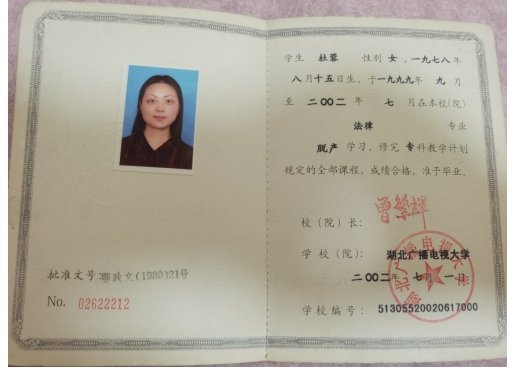 批准文号:鄂政文(1980)21号
No. 02622212
学生 杜蓉 性别 女 ,一九七八年
八月十五日生,于一九九九年 九 月
至 二00二 年 七 月在本校(院)
法律 专业
脱产 学习,修完 专科教学计划
规定的全部课程,成绩合格,准予毕业。
校(院)长:
曾繁辉
学校(院): 湖北广播电视大学
二00二年 七月 一日
学校编号: 51305520020617000